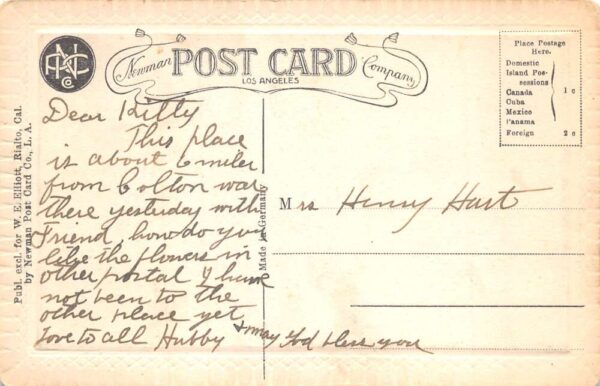 Newman POST CARD Company
LOS ANGELES
Place Postage
Here.
Domestic
Island Pos-
sessions
Canada
Cuba
Mexico
Panama
1 c
Foreign 2 c
Dear Kitty
This place
is about 6 miles
from Colton was
there yesterday with
Friend how do you
like the flowers in
other postal I have
not been to the
other place yet
Love to all Hubby & may God bless you
Mrs Henry Hart
Made in Germany
Publ. excl. for W. E. Elliott, Rialto, Cal.
by Newman Post Card Co., L. A.